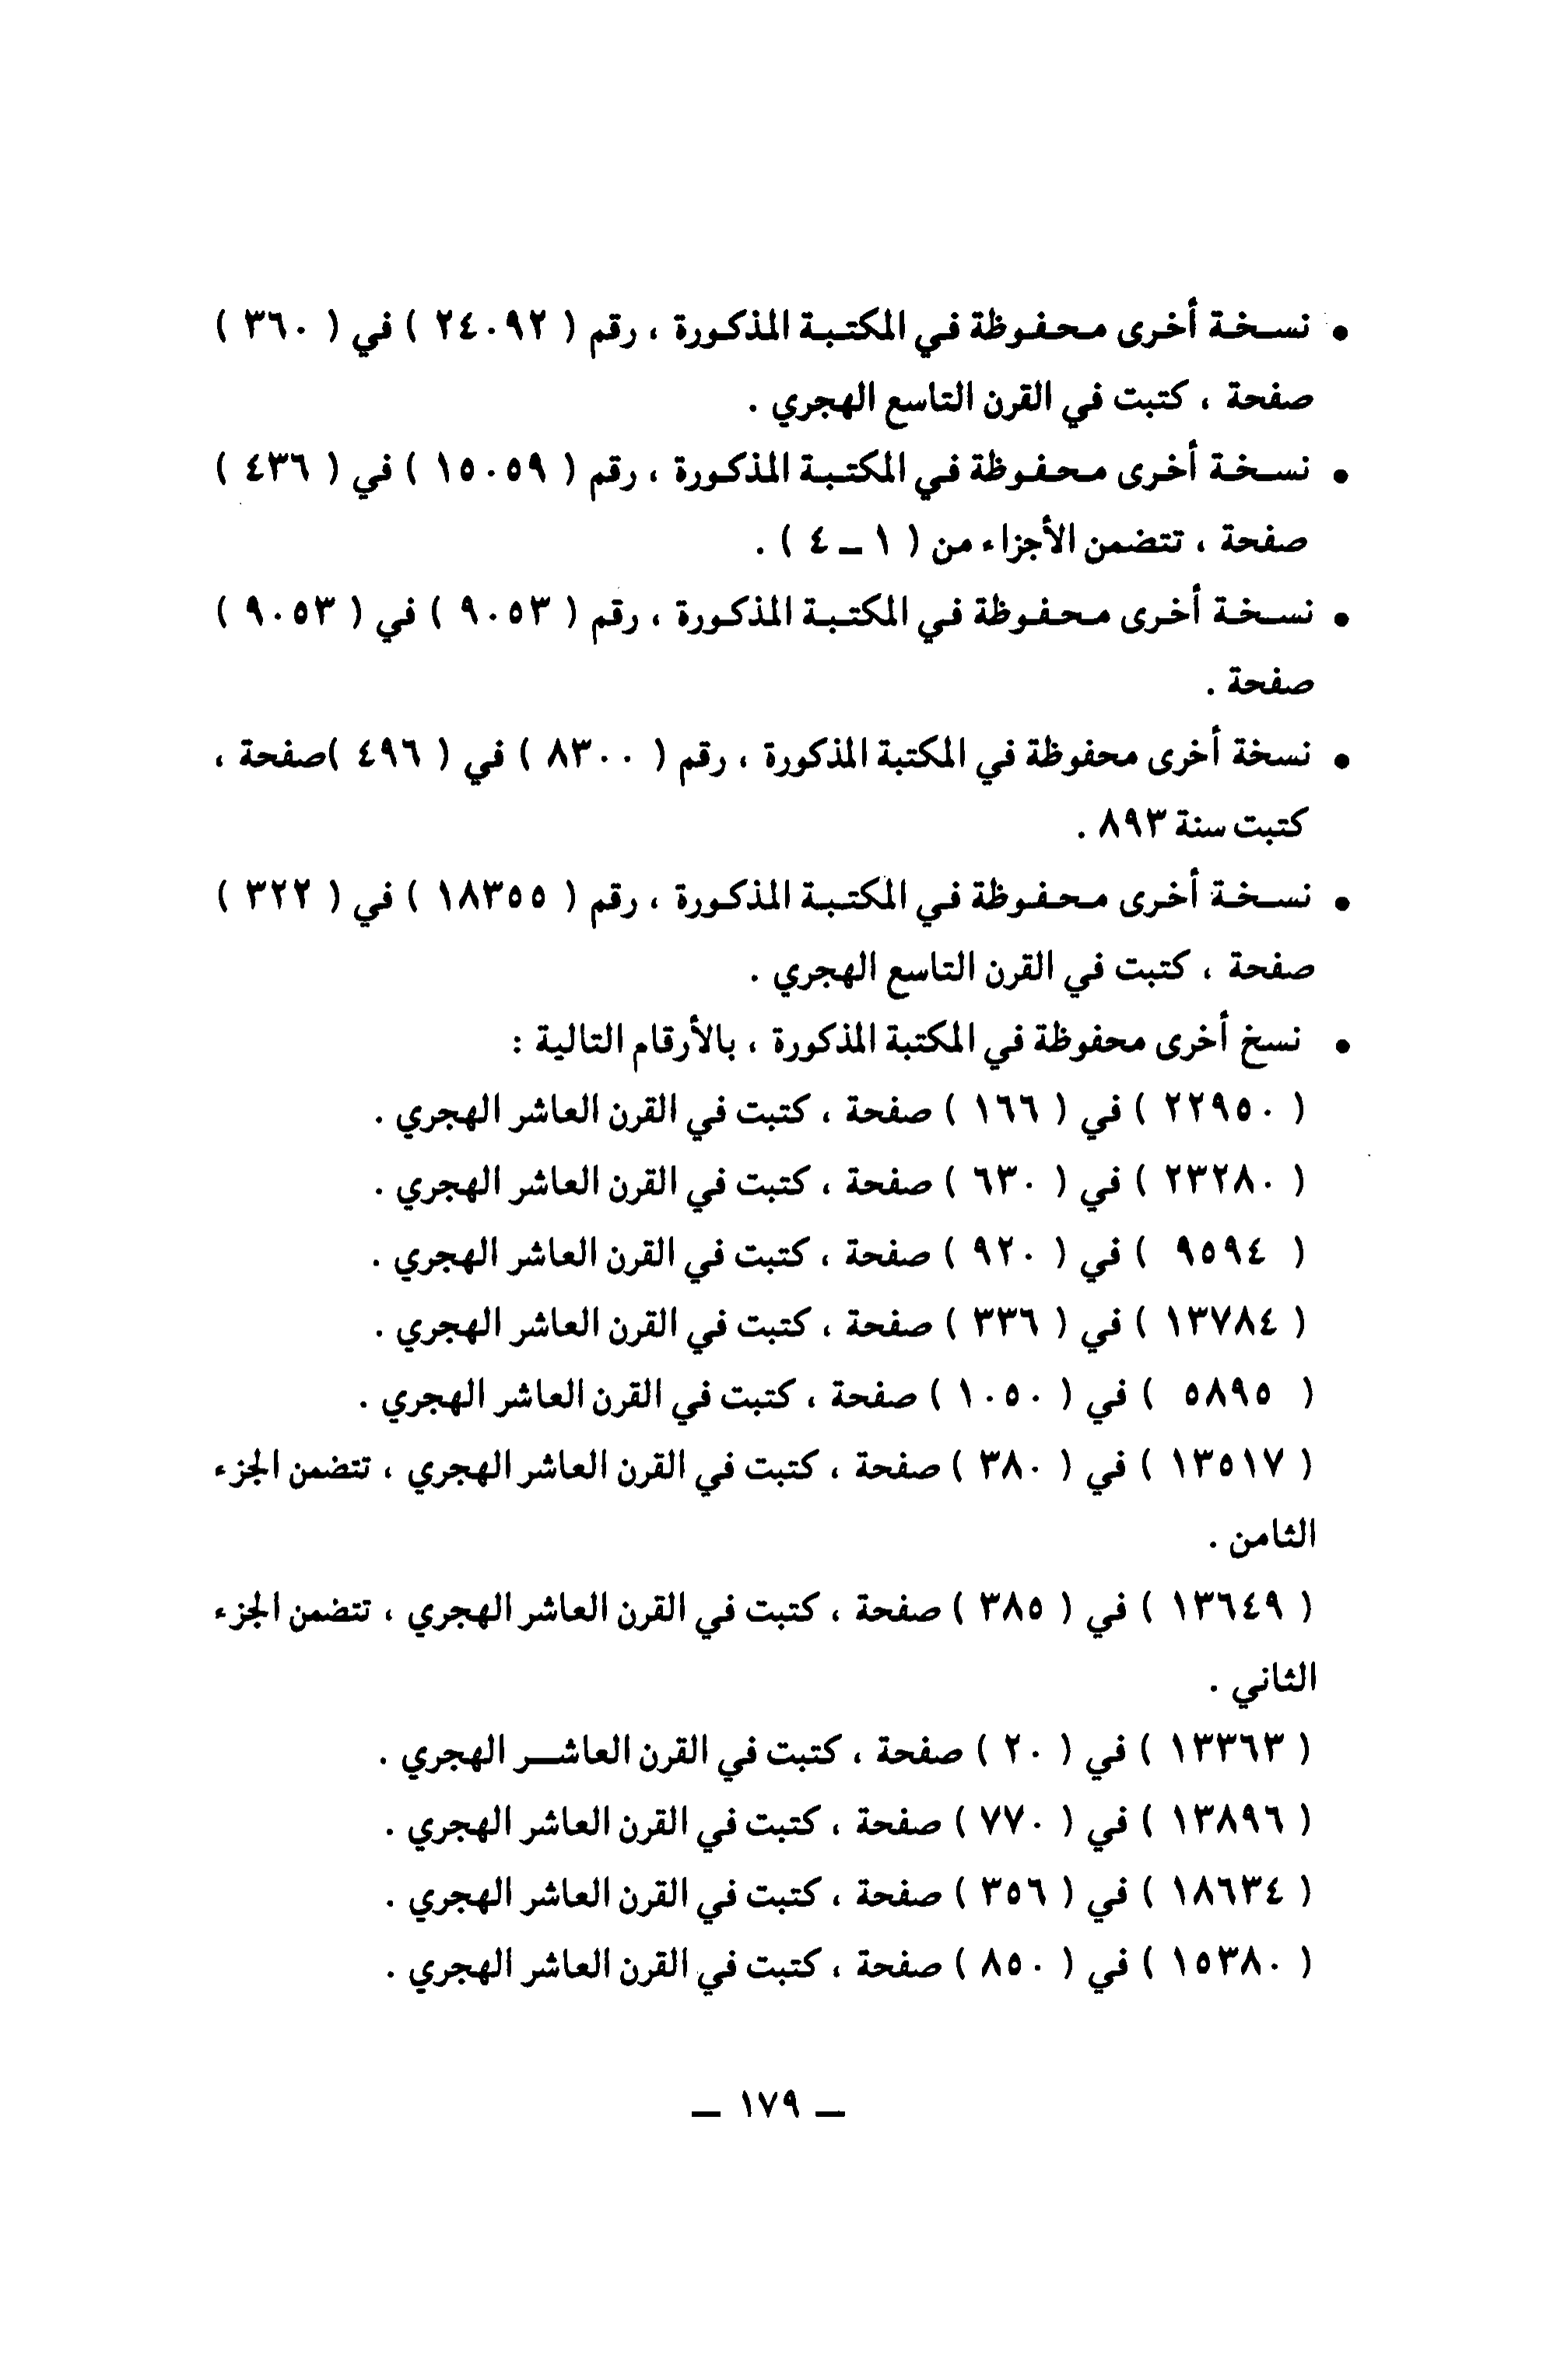 • نسخة أخرى محفوظة في المكتبة المذكورة ، رقم ( ٢٤٠٩٢ ) في ( ٣٦٠ )
صفحة ، كتبت في القرن التاسع الهجري .
• نسخة أخرى محفوظة في المكتبة المذكورة ، رقم ( ١٥٠٥٩ ) في ( ٤٣٦ )
صفحة ، تتضمن الأجزاء من ( ١ ـ ٤ ) .
• نسخة أخرى محفوظة في المكتبة المذكورة ، رقم ( ٩٠٥٣ ) في ( ٩٠٥٣ )
صفحة .
• نسخة أخرى محفوظة في المكتبة المذكورة ، رقم ( ٨٣٠٠ ) في ( ٤٩٦ )صفحة ،
كتبت سنة ٨٩٣ .
• نسخة أخرى محفوظة في المكتبة المذكورة ، رقم ( ١٨٣٥٥ ) في ( ٣٢٢ )
صفحة ، كتبت في القرن التاسع الهجري .
• نسخ أخرى محفوظة في المكتبة المذكورة ، بالأرقام التالية :
( ٢٢٩٥٠ ) في ( ١٦٦ ) صفحة ، كتبت في القرن العاشر الهجري .
( ٢٣٢٨٠ ) في ( ٦٣٠ ) صفحة ، كتبت في القرن العاشر الهجري .
( ٩٥٩٤ ) في ( ٩٢٠ ) صفحة ، كتبت في القرن العاشر الهجري .
( ١٣٧٨٤ ) في ( ٣٣٦ ) صفحة ، كتبت في القرن العاشر الهجري .
( ٥٨٩٥ ) في ( ١٠٥٠ ) صفحة ، كتبت في القرن العاشر الهجري .
( ١٣٥١٧ ) في ( ٣٨٠ ) صفحة ، كتبت في القرن العاشر الهجري ، تتضمن الجزء
الثامن .
( ١٣٦٤٩ ) في ( ٣٨٥ ) صفحة ، كتبت في القرن العاشر الهجري ، تتضمن الجزء
الثاني .
( ١٣٣٦٣ ) في ( ٢٠ ) صفحة ، كتبت في القرن العاشـــر الهجري .
( ١٣٨٩٦ ) في ( ٧٧٠ ) صفحة ، كتبت في القرن العاشر الهجري .
( ١٨٦٣٤ ) في ( ٣٥٦ ) صفحة ، كتبت في القرن العاشر الهجري .
( ١٥٣٨٠ ) في ( ٨٥٠ ) صفحة ، كتبت في القرن العاشر الهجري .
ـ ١٧٩ ـ